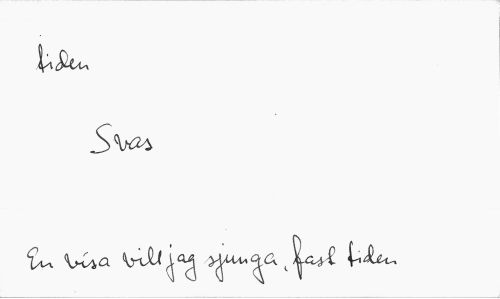 tiden
Svas
En visa vill jag sjunga, fast tiden